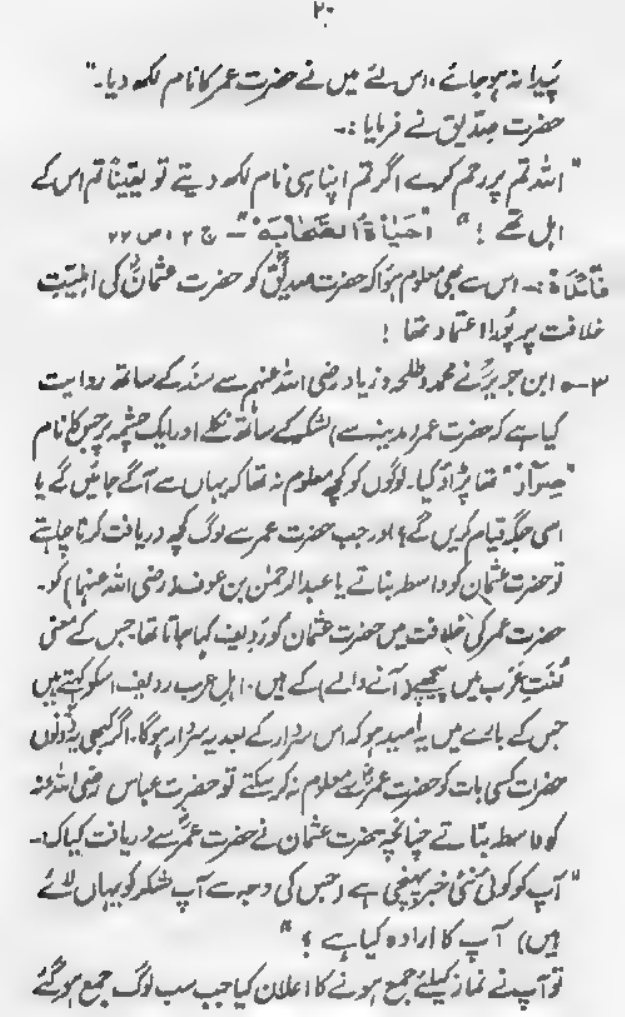 ۲۰
پَیدا نہ ہو جائے، اس لئے میں نے حضرت عمر کا نام لکھ دیا۔"
حضرت صِدّیق نے فرمایا :-
"اللہ تم پر رحم کرے اگر تم اپنا ہی نام لکھ دیتے تو یقیناً تم اس کے
اہل تھے !" "حَیَاۃُ الصَّحَابَہ"۔ ج ۲ ، ص ۲۲
فَائدَہ :- اس سے بھی معلوم ہوا کہ حضرت صدیقؓ کو حضرت عثمانؓ کی اہلیّتِ
خلافت پر پُورا اعتماد تھا !
۳-۰ ابن جریرؒ نے محمد و طلحہ و زیاد رضی اللہ عنہم سے سند کے ساتھ روایت
کیا ہے کہ حضرت عمر (مدینہ سے) لشکر کے ساتھ نکلے اور ایک چشمہ پر جس کا نام
"صِرَآر" تھا پڑاؤ کیا۔ لوگوں کو کچھ معلوم نہ تھا کہ یہاں سے آگے جائیں گے یا
اسی جگہ قیام کریں گے؟ اور جب حضرت عمر سے لوگ کچھ دریافت کرنا چاہتے
تو حضرت عثمان کو واسطہ بناتے یا عبدالرحمٰن بن عوف (رضی اللہ عنہما) کو۔
حضرت عمر کی خلافت میں حضرت عثمان کو رَدِیف کہا جاتا تھا جس کے معنی
لُغتِ عَرَب میں پیچھے (آنے والے) کے ہیں۔ اہلِ عرب ردیف اسکو کہتے ہیں
جس کے بارے میں یہ اُمید ہو کہ اس سردار کے بعد یہ سردار ہوگا۔ اگر کبھی یہ دونوں
حضرات کسی بات کو حضرت عمرؓ سے معلوم نہ کر سکتے تو حضرت عباس رضی اللہ عنہ
کو واسطہ بناتے چنانچہ حضرت عثمان نے حضرت عمرؓ سے دریافت کیا کہ:-
"آپ کو کوئی نئی خبر پہنچی ہے (جس کی وجہ سے آپ لشکر کو یہاں لائے
ہیں) آپ کا ارادہ کیا ہے ؟"
تو آپ نے نماز کیلئے جمع ہونے کا اعلان کیا جب سب لوگ جمع ہو گئے